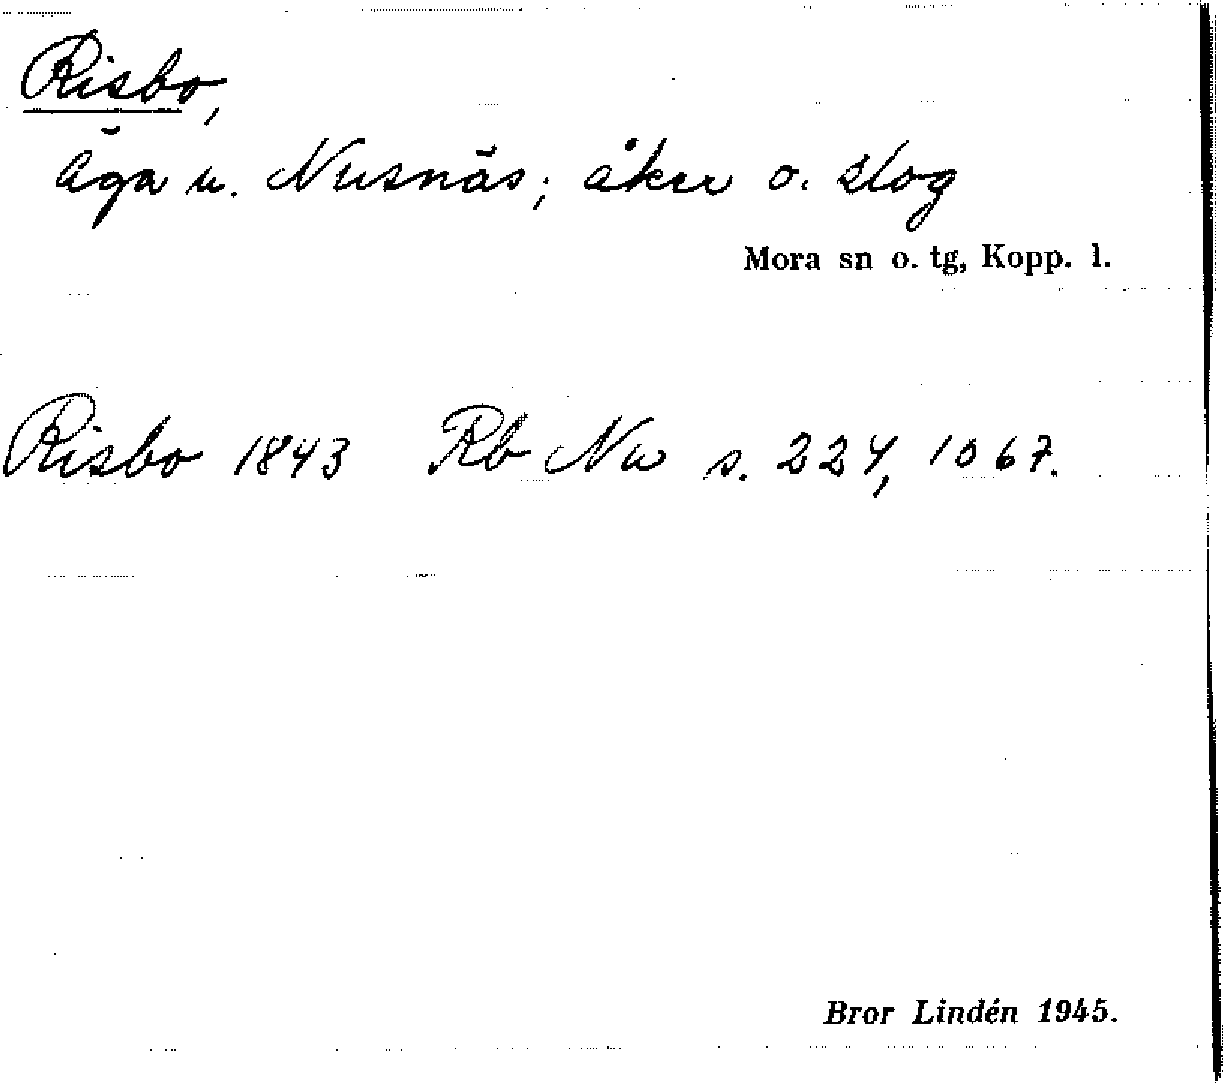 Risbo,
äga u. Nusnäs; åker o. skog
Mora sn o. tg, Kopp. l.
Risbo 1843 Rb Nu s. 224, 1067.
Bror Lindén 1945.